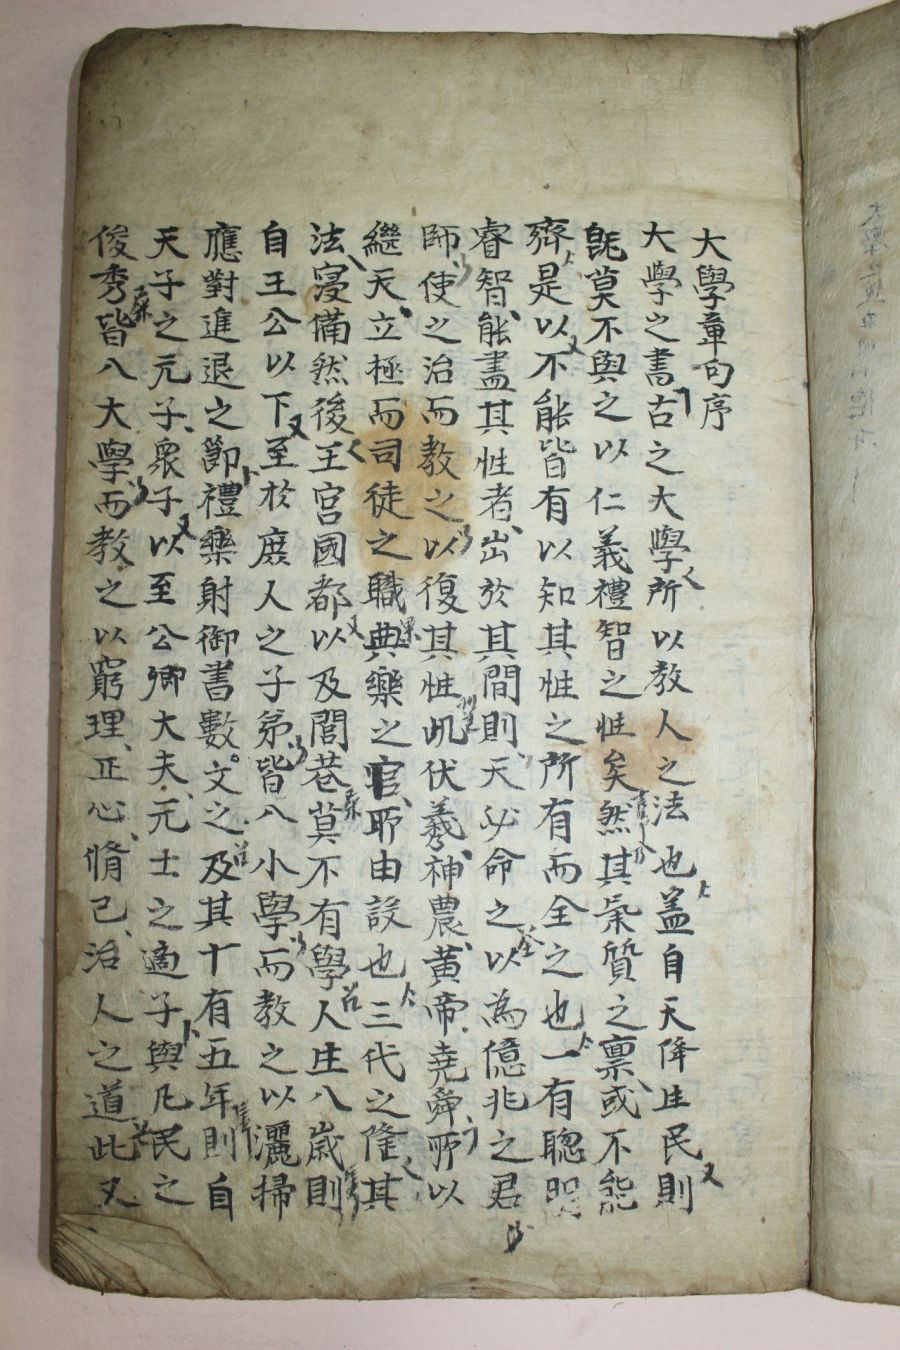 大學章句序
大學之書古之大學所以教人之法也盖自天降生民則
旣莫不與之以仁義禮智之性矣然其氣質之禀或不能
齊是以不能皆有以知其性之所有而全之也一有聡明
睿智能盡其性者出於其間則天必命之以為億兆之君
師使之治而教之以復其性此伏羲神農黃帝堯舜所以
繼天立極而司徒之職典樂之官所由設也三代之隆其
法寖備然後王宮國都以及閭巷莫不有學人生八歲則
自王公以下至於庶人之子弟皆入小學而教之以灑掃
應對進退之節禮樂射御書數文之及其十有五年則自
天子之元子衆子以至公卿大夫元士之適子與凡民之
俊秀皆入大學而教之以窮理正心脩己治人之道此又